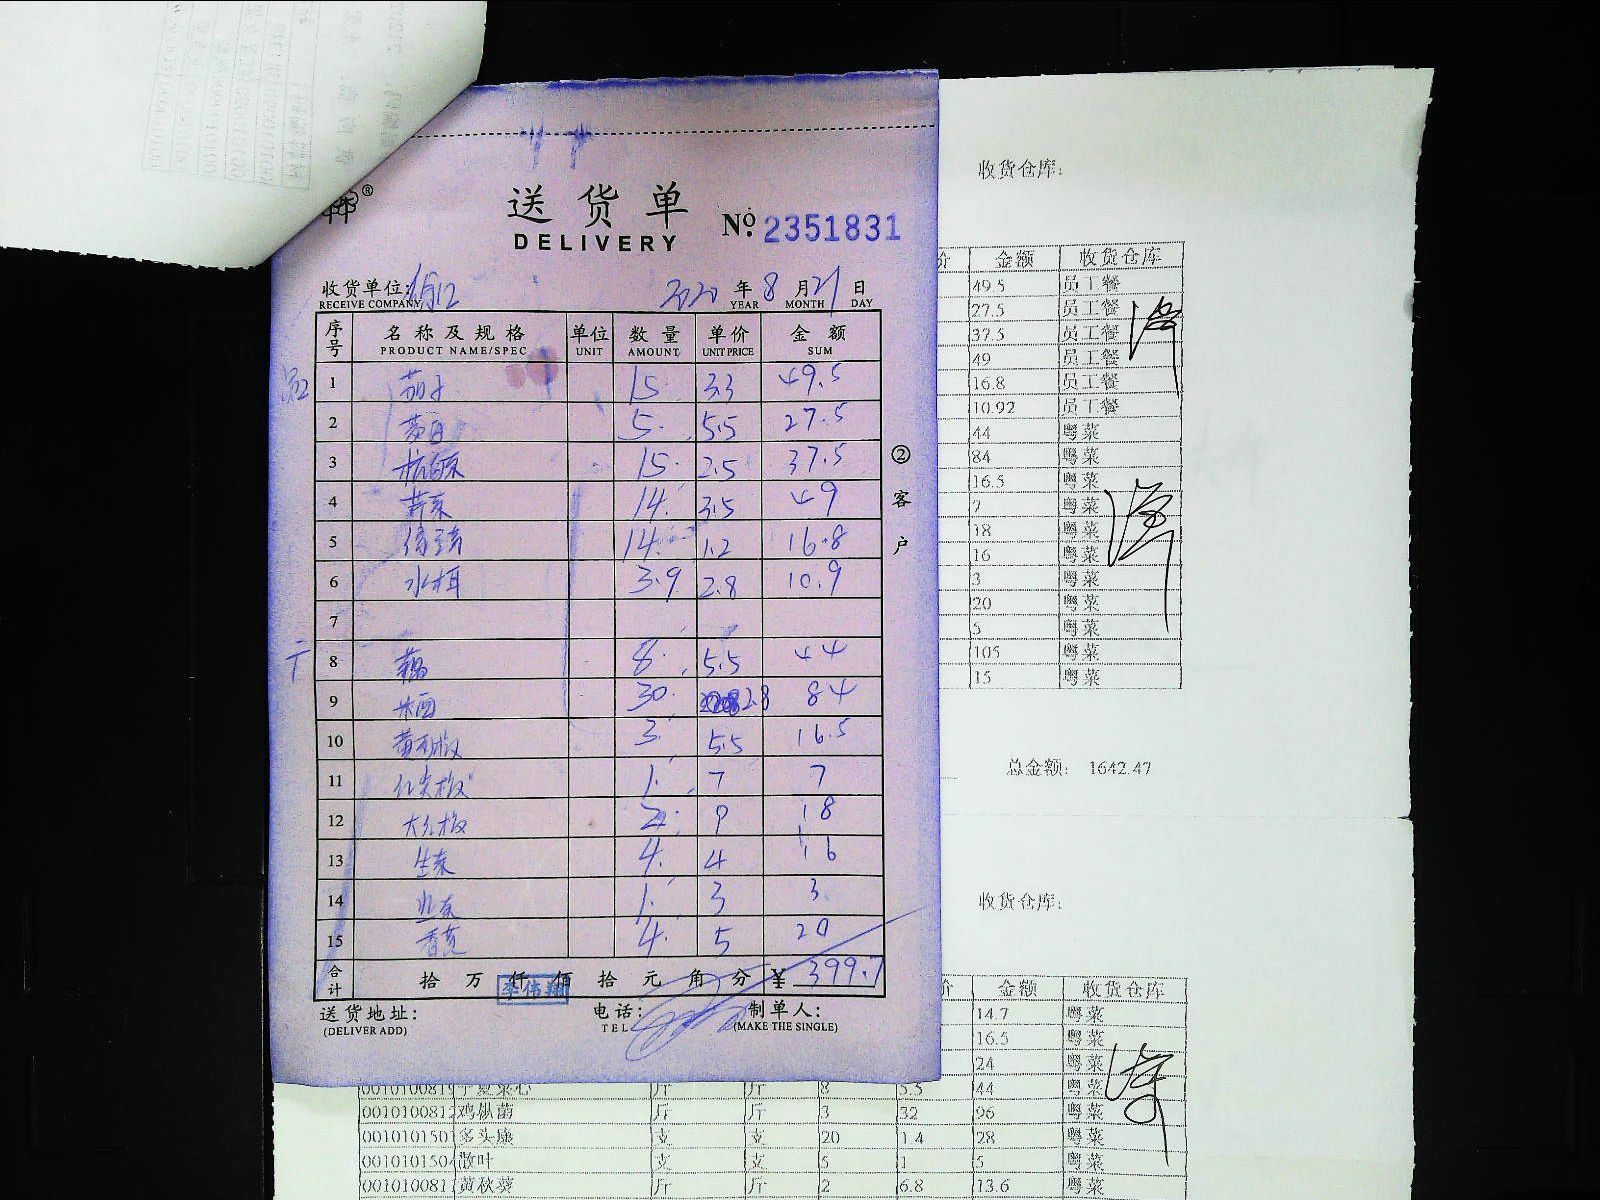 送货单
DELIVERY
№ 2351831
收货单位:
RECEIVE COMPANY
2020 年 8 月 21 日
YEAR MONTH DAY
序号 名称及规格 单位 数量 单价 金额
PRODUCT NAME/SPEC UNIT AMOUNT UNIT PRICE SUM
1 茄子 15 3.3 49.5
2 茭白 5 5.5 27.5
3 杭白菜 15 2.5 37.5
4 芹菜 14 3.5 49
5 14 1.2 16.8
6 3.9 2.8 10.9
7
8 藕 8 5.5 44
9 米酒 30 2.8 84
10 3 5.5 16.5
11 红尖椒 1 7 7
12 大红椒 2 9 18
13 生菜 4 4 16
14 1 3 3
15 香芫 4 5 20
合计 拾 万 仟 佰 拾 元 角 分 ¥ 399.7
李伟翔
送货地址: 电话: 制单人:
(DELIVER ADD) TEL (MAKE THE SINGLE)
②客户
收货仓库:
价 金额 收货仓库
49.5 员工餐
27.5 员工餐
37.5 员工餐
49 员工餐
16.8 员工餐
10.92 员工餐
44 粤菜
84 粤菜
16.5 粤菜
7 粤菜
18 粤菜
16 粤菜
3 粤菜
20 粤菜
5 粤菜
105 粤菜
15 粤菜
总金额: 1642.47
收货仓库:
价 金额 收货仓库
14.7 粤菜
16.5 粤菜
24 粤菜
001010081 宁夏菜心 斤 斤 8 5.5 44 粤菜
001010081 鸡枞菌 斤 斤 3 32 96 粤菜
001010150 多头康 支 支 20 1.4 28 粤菜
001010150 散叶 支 支 5 1 5 粤菜
001010081 黄秋葵 斤 斤 2 6.8 13.6 粤菜